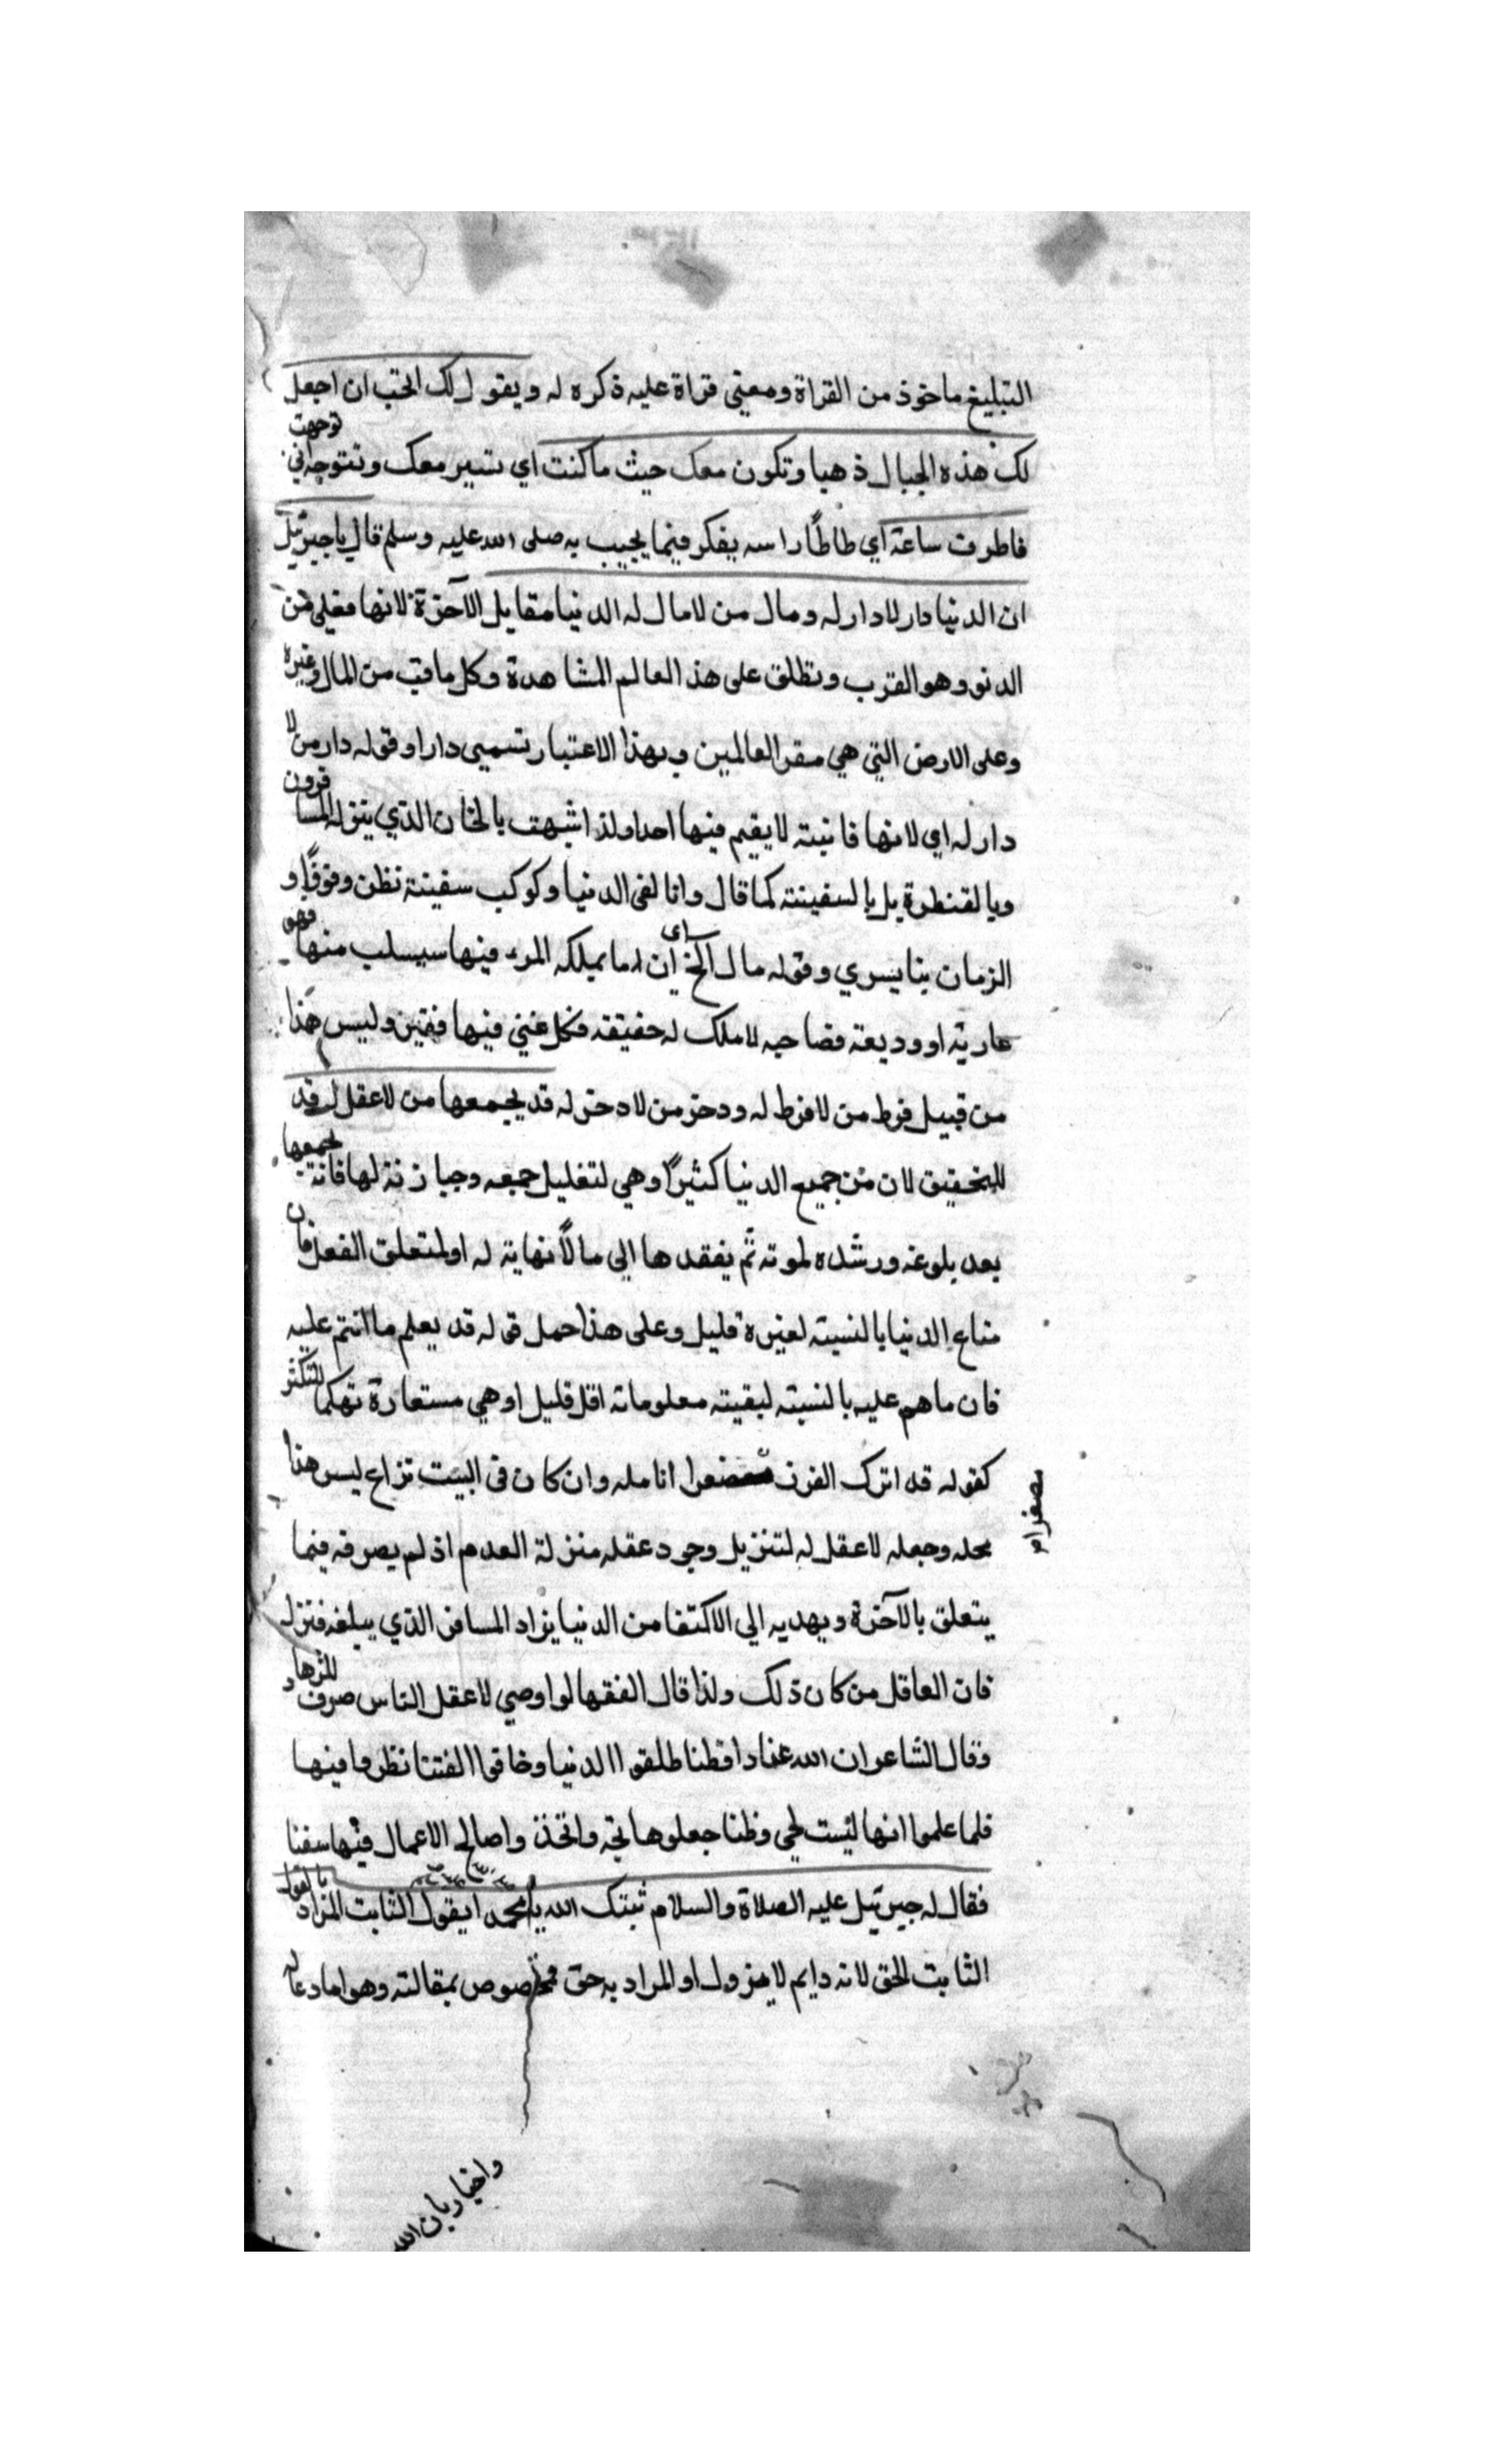 التبليغ ماخوذ من القراة ومعنى قراة عليه ذكره له ويقول لك اتحب ان اجعل
لك هذه الجبال ذهبا وتكون معك حيث ما كنت اي تسير معك وتتوجه اني توجهت
فاطرق ساعة اي طاطا راسه يفكر فيما يجيب به صلى الله عليه وسلم قال يا جبرئيل
ان الدنيا دار لا دار له ومال من لا مال له الدنيا مقابل الآخرة لانها فعلى من
الدنو وهو القرب وتطلق على هذ العالم المشاهدة وكل ما فيه من المال وغيره
وعلى الارض التي هي مقر العالمين وبهذا الاعتبار تسمى دارا وقوله دار من لا
دار له اي لانها فانية لا يقيم فيها احد ولذا شبهت بالخان الذي ينزله المسافرون
وبالقنطرة بل بالسفينة كما قال وانا لفى الدنيا وكوكب سفينة نظن وقوفًا و
الزمان بنا يسري وقوله مال الخ اي ان ما يملكه المرء فيها سيسلب منها فهو
عارية او وديعة فصاحبه لا ملك له حقيقه فكل غني فيها فقير وليس هذا
من قبيل فرط من لا فرط له ودخر من لا دخر له قد يجمعها من لا عقل له قد
للتحقيق لان من جميع الدنيا كثيرًا وهي لتقليل جمعه وحيازته لها فانه يجمعها
بعد بلوغه ورشده لموته ثم يفقدها الى ما لا نهاية له او لمتعلق الفعل فان
متاع الدنيا بالنسبة لغيره قليل وعلى هذا حمل قوله قد يعلم ما انتم عليه
فان ما هم عليه بالنسبة لبقية معلوماته اقل قليل او هي مستعارة تهكما للتكثر
كقوله قد اترك القرن مصفرا انامله وان كان فى البيت نزاع ليس هذا
محله وجعله لا عقل له لتنزيل وجود عقله منزلة العدم اذ لم يصرفه فيما
يتعلق بالآخرة ويهديه الى الاكتفا من الدنيا بزاد المسافر الذي يبلغه منزله
فان العاقل من كان ذلك ولذا قال الفقها لو اوصي لاعقل الناس صرف للزهاد
وقال الشاعر ان الله عبادا فطنا طلقوا الدنيا وخافوا الفتنا نظروا فيها
فلما علموا انها ليست لحي وطنا جعلوها لجة واتخذوا صالح الاعمال فيها سفنا
فقال له جبرئيل عليه الصلاة والسلام ثبتك الله يا محمد بالقول الثابت المراد
الثابت الحق لانه دايم لا يزول او المراد به حق مخصوص بمقالته وهو اما دعا له
مصفرا
واخبار بان الله